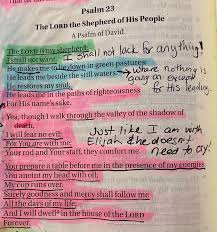 Psalm 23
The LORD the Shepherd of His People
A Psalm of David.
The LORD is my shepherd;
I shall not want. I shall not lack for anything!
He makes me to lie down in green pastures;
He leads me beside the still waters. → where nothing is going on except for His leading.
He restores my soul;
He leads me in the paths of righteousness
For His name's sake.
Yea, though I walk through the valley of the shadow of
death,
I will fear no evil;
For You are with me;
Your rod and Your staff, they comfort me.
Just like I am with Elijah & he doesn't need to cry!
You prepare a table before me in the presence of my enemies;
You anoint my head with oil;
My cup runs over.
Surely goodness and mercy shall follow me
All the days of my life;
And I will dwell in the house of the LORD
Forever.